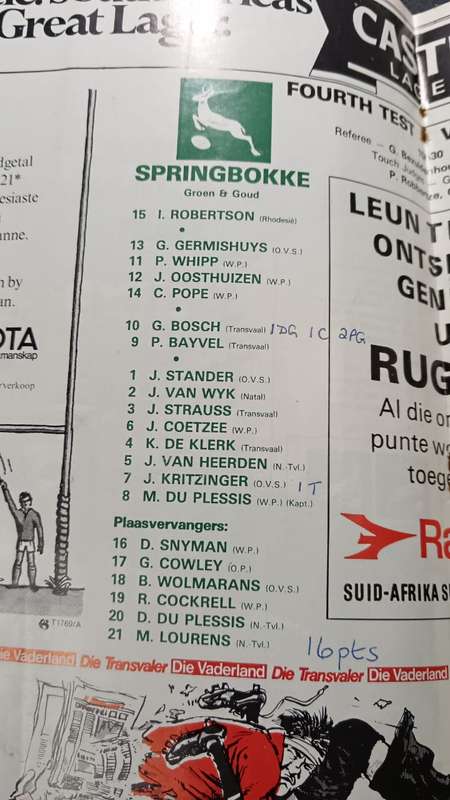 Great Lager.
CASTLE
LAGER
FOURTH TEST
Referee – G.
Touch Judges –
P.
SPRINGBOKKE
Groen & Goud
15 I. ROBERTSON (Rhodesië)
•
13 G. GERMISHUYS (O.V.S.)
11 P. WHIPP (W.P.)
12 J. OOSTHUIZEN (W.P.)
14 C. POPE (W.P.)
•
10 G. BOSCH (Transvaal) 1DG 1C 2PG
9 P. BAYVEL (Transvaal)
•
1 J. STANDER (O.V.S.)
2 J. VAN WYK (Natal)
3 J. STRAUSS (Transvaal)
6 J. COETZEE (W.P.)
4 K. DE KLERK (Transvaal)
5 J. VAN HEERDEN (N.-Tvl.)
7 J. KRITZINGER (O.V.S.) 1T
8 M. DU PLESSIS (W.P.) (Kapt.)
Plaasvervangers:
16 D. SNYMAN (W.P.)
17 G. COWLEY (O.P.)
18 B. WOLMARANS (O.V.S.)
19 R. COCKRELL (W.P.)
20 D. DU PLESSIS (N.-Tvl.)
21 M. LOURENS (N.-Tvl.)
16pts
dgetal
21*
esiaste
anne.
n by
an.
OTA
manskap
erverkoop
T1760/A
LEUN
ONTS
GEN
U
RUG
Al die
punte
toeg
Ra
SUID-AFRIKA
Die Vaderland Die Transvaler Die Vaderland Die Transvaler Die Vaderland